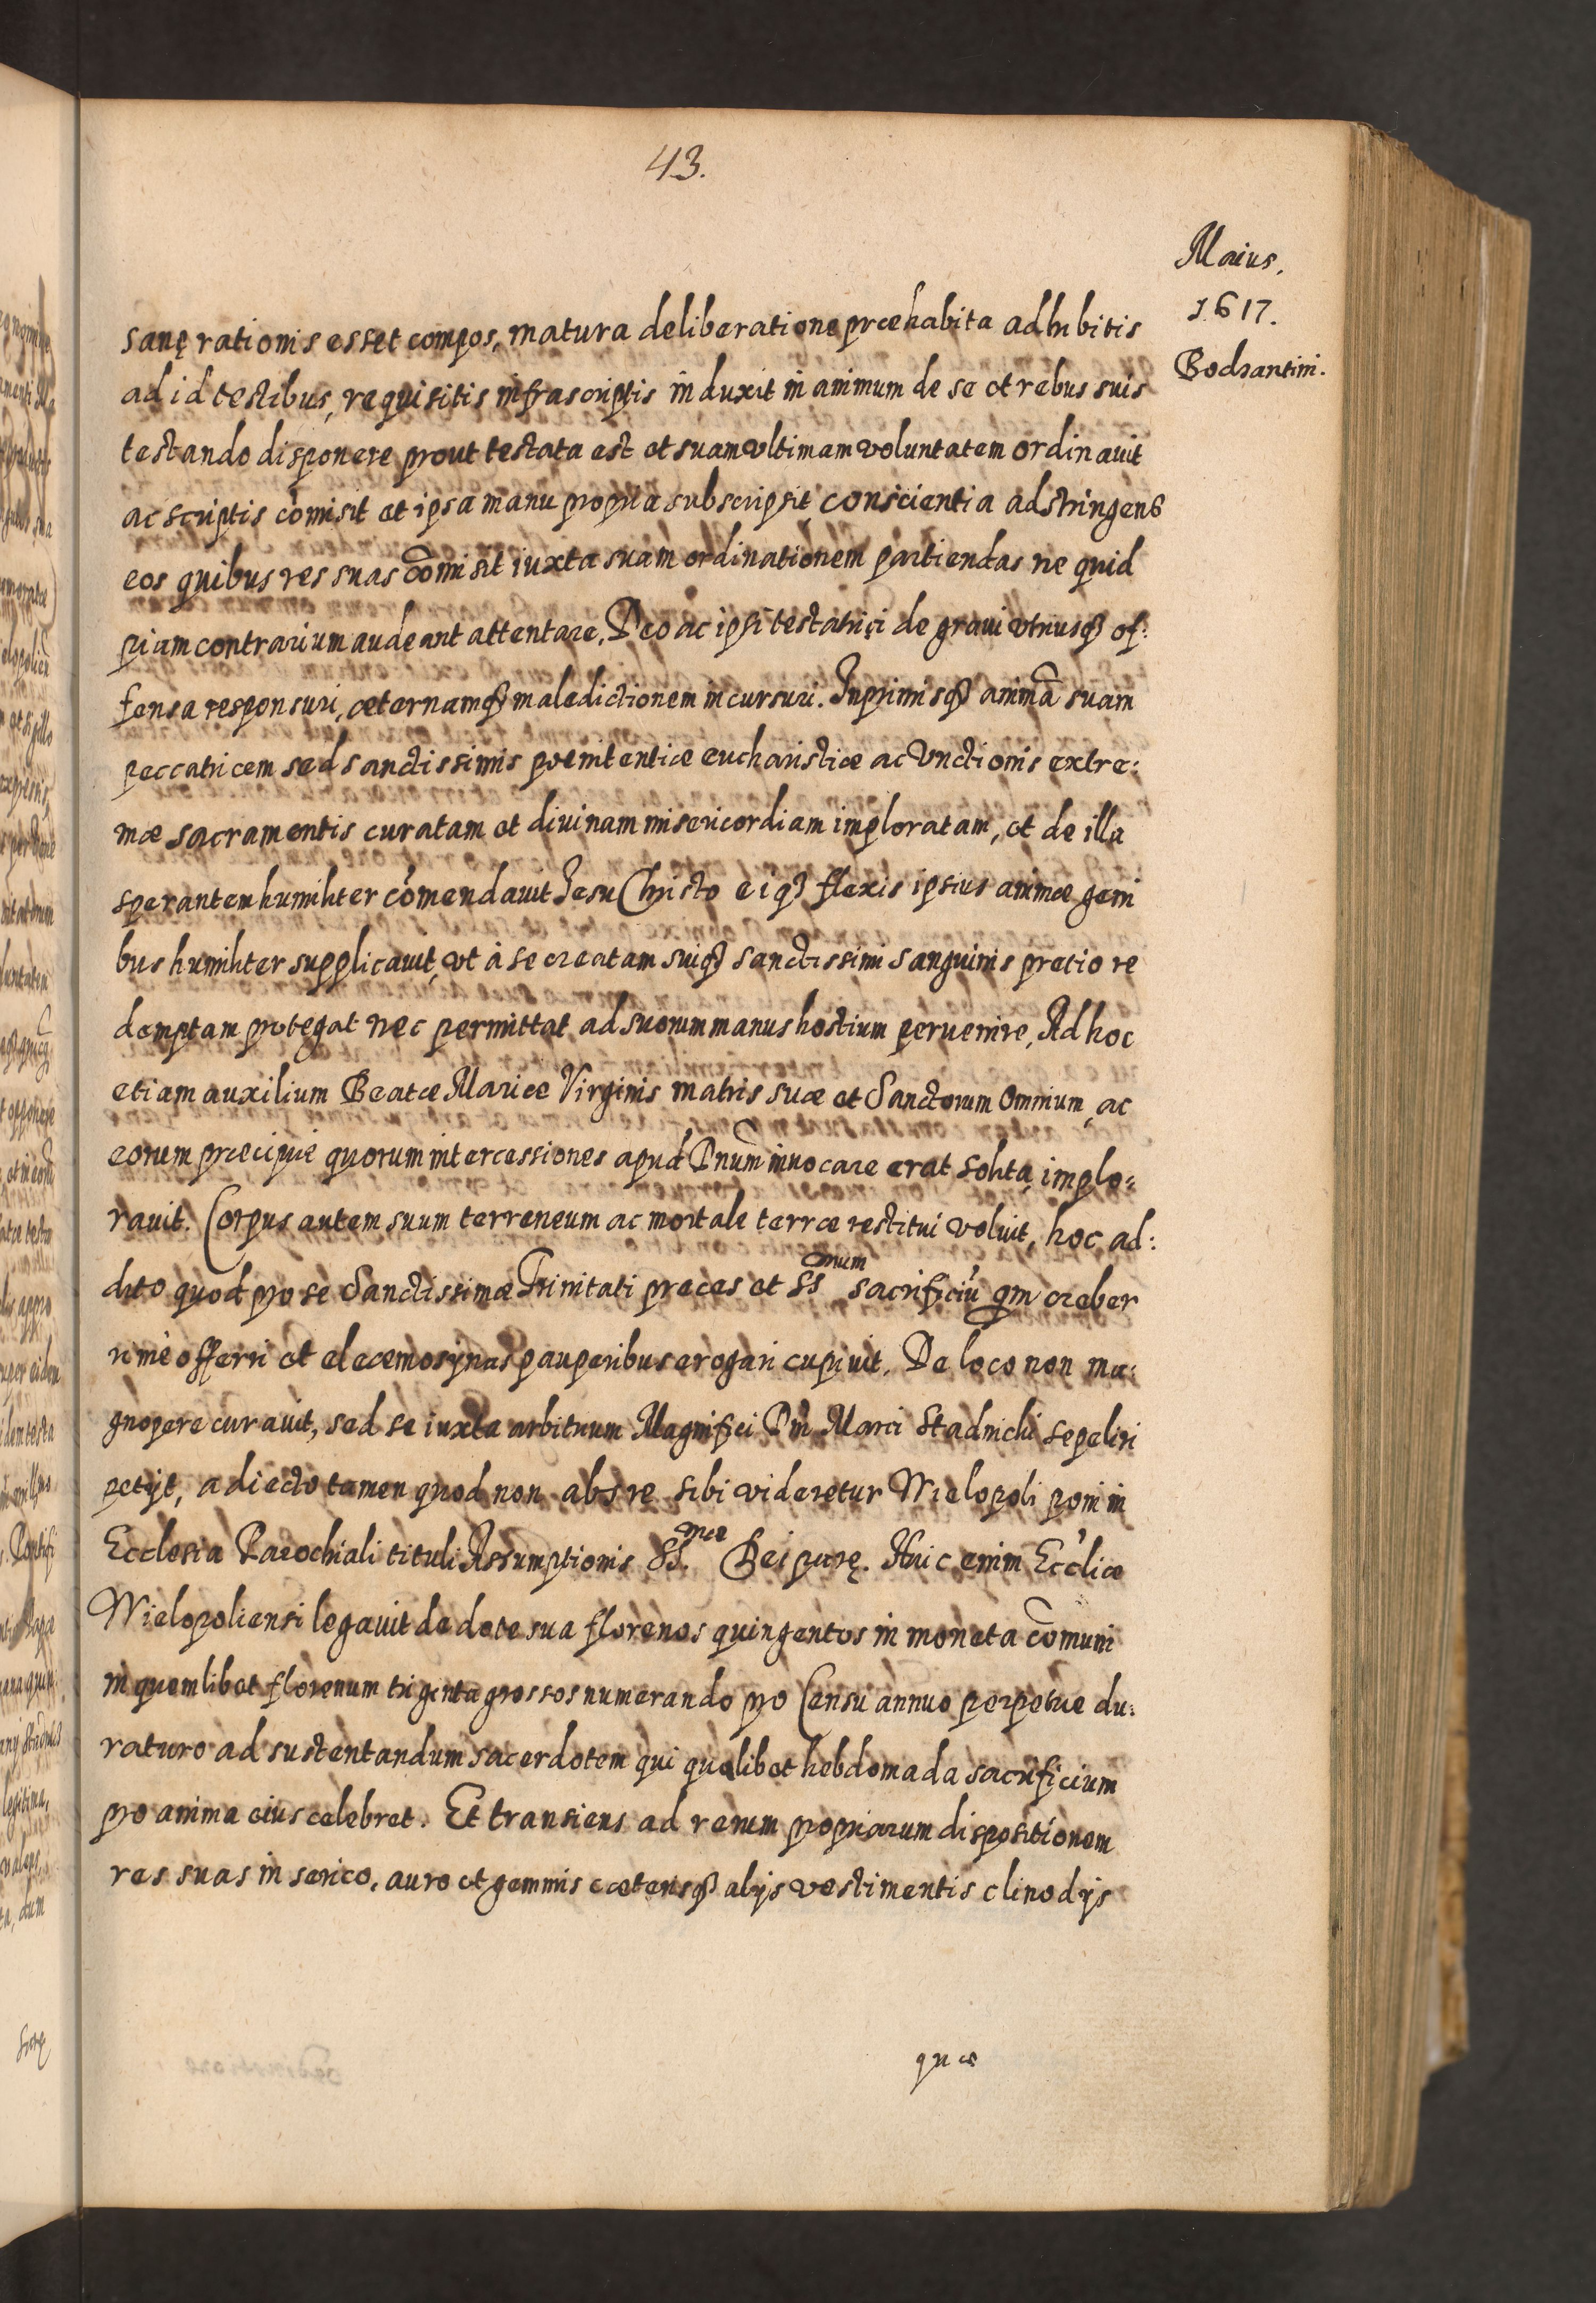 43.
Maius.
1617.
Bodzantini.
sanę rationis esset compos, matura deliberatione præhabita adhibitis
ad id testibus, requisitis infrascriptis induxit in animum de se et rebus suis
testando disponere prout testata est et suam vltimam voluntatem ordinauit
ac scriptis com̃isit et ipsa manu propria subscripsit, conscientia adstringens
eos quibus res suas com̃isit iuxta suam ordinationem partiendas ne quid
piam contrarium audeant attentare, Deo ac ipsi testatrici de graui vtriusq3 of:
fensa responsuri, æternamq3 maledictionem incursuri. Inprimisq3 animã suam
peccatricem sed sanctissimis poenitentiæ eucharistiæ ac Vnctionis extre:
mæ sacramentis curatam et diuinam misericordiam imploratam, et de illa
sperantem humiliter com̃endauit Jesu Christo eiq3 flexis ipsius animæ geni
bus humiliter supplicauit, vt à se creatam suiq3 sanctissimi sanguinis pretio re
demptam protegat nec permittat ad suorum manus hostium peruenire, Ad hoc
etiam auxilium Beatæ Mariæ Virginis matris suæ et Sanctorum Omnium, ac
eorum præcipuè quorum intercessiones apud Dnum inuocare erat solita, implo:
rauit. Corpus autem suum terreneum ac mortale terræ restitui voluit, hoc ad:
dito quod pro se Sanctissimæ Trinitati preces et SSmum sacrificiũ qm creber
rimè offerri et eleemosynas pauperibus erogari cupiuit. De loco non ma:
gnopere curauit, sed se iuxta arbitrium Magnifici Dni Marci Stadnicki sepeliri
petijt, adiecto tamen quod non abs re sibi videretur Wielopoli poni in
Ecclesia Parochiali tituli Assumptionis SS.mæ Dei parę. Huic enim Eccliæ
Wielopoliensi legauit de dote sua florenos quingentos in moneta com̃uni
in quemlibet florenum triginta grossos numerando pro Censu annuo perpetuè du:
raturo ad sustentandum sacerdotem qui qualibet hebdomada sacrificium
pro anima eius celebret. Et transiens ad rerum propriarum dispositionem
res suas in serico, auro et gemmis cæterisq3 alijs vestimentis clinodijs
quæ